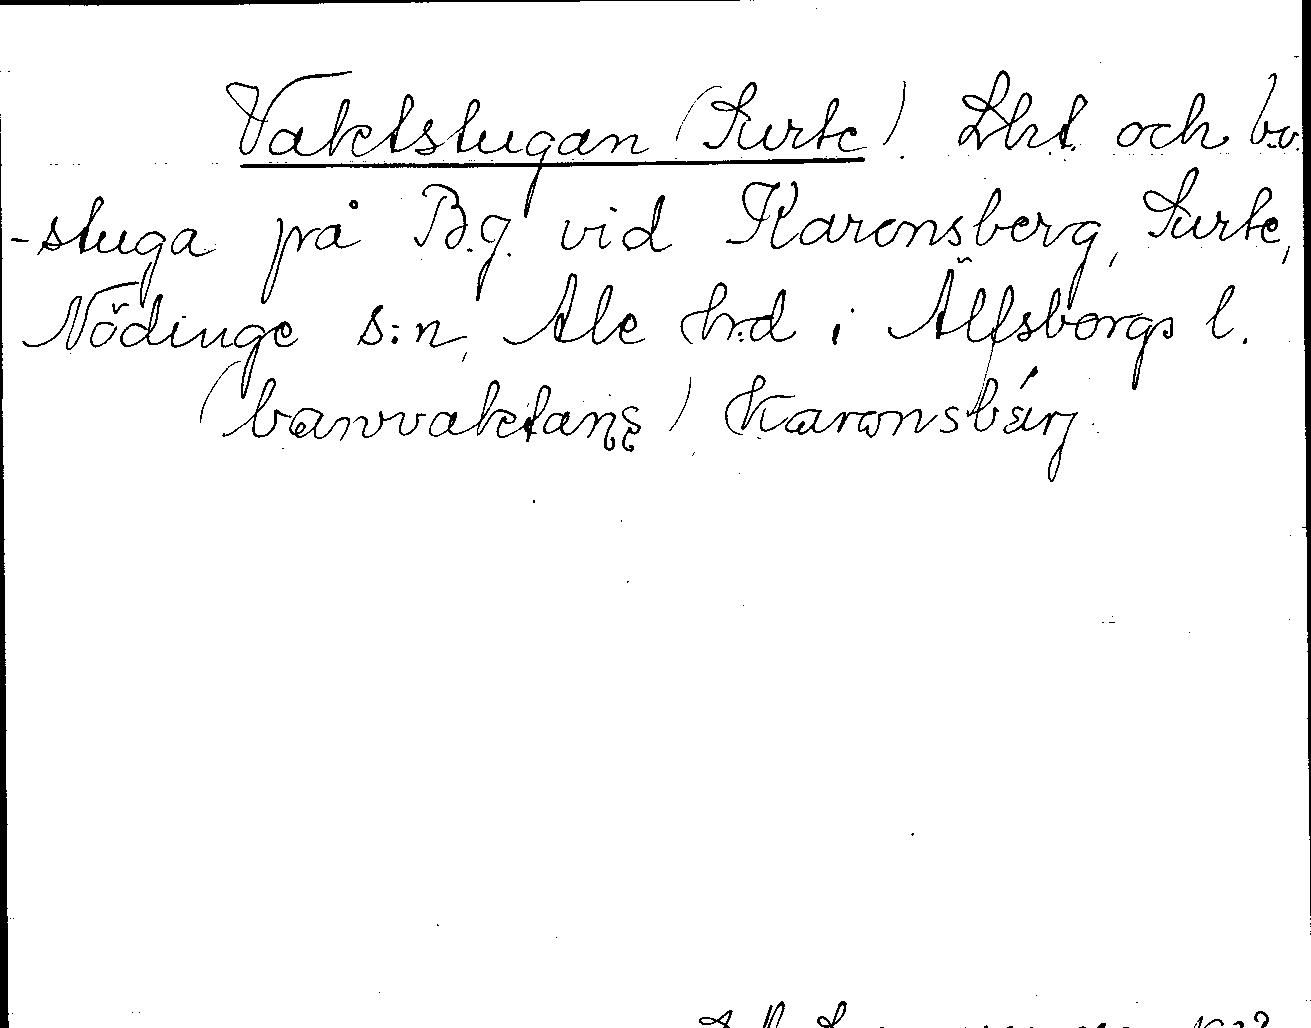 Vaktstugan (Surte). Lht. och b.v.
-stuga på B.J. vid Karonsberg, Surte,
Nödinge s:n, Ale hrd i Älfsborgs l.
(banvvaktans) Karonsbärj.